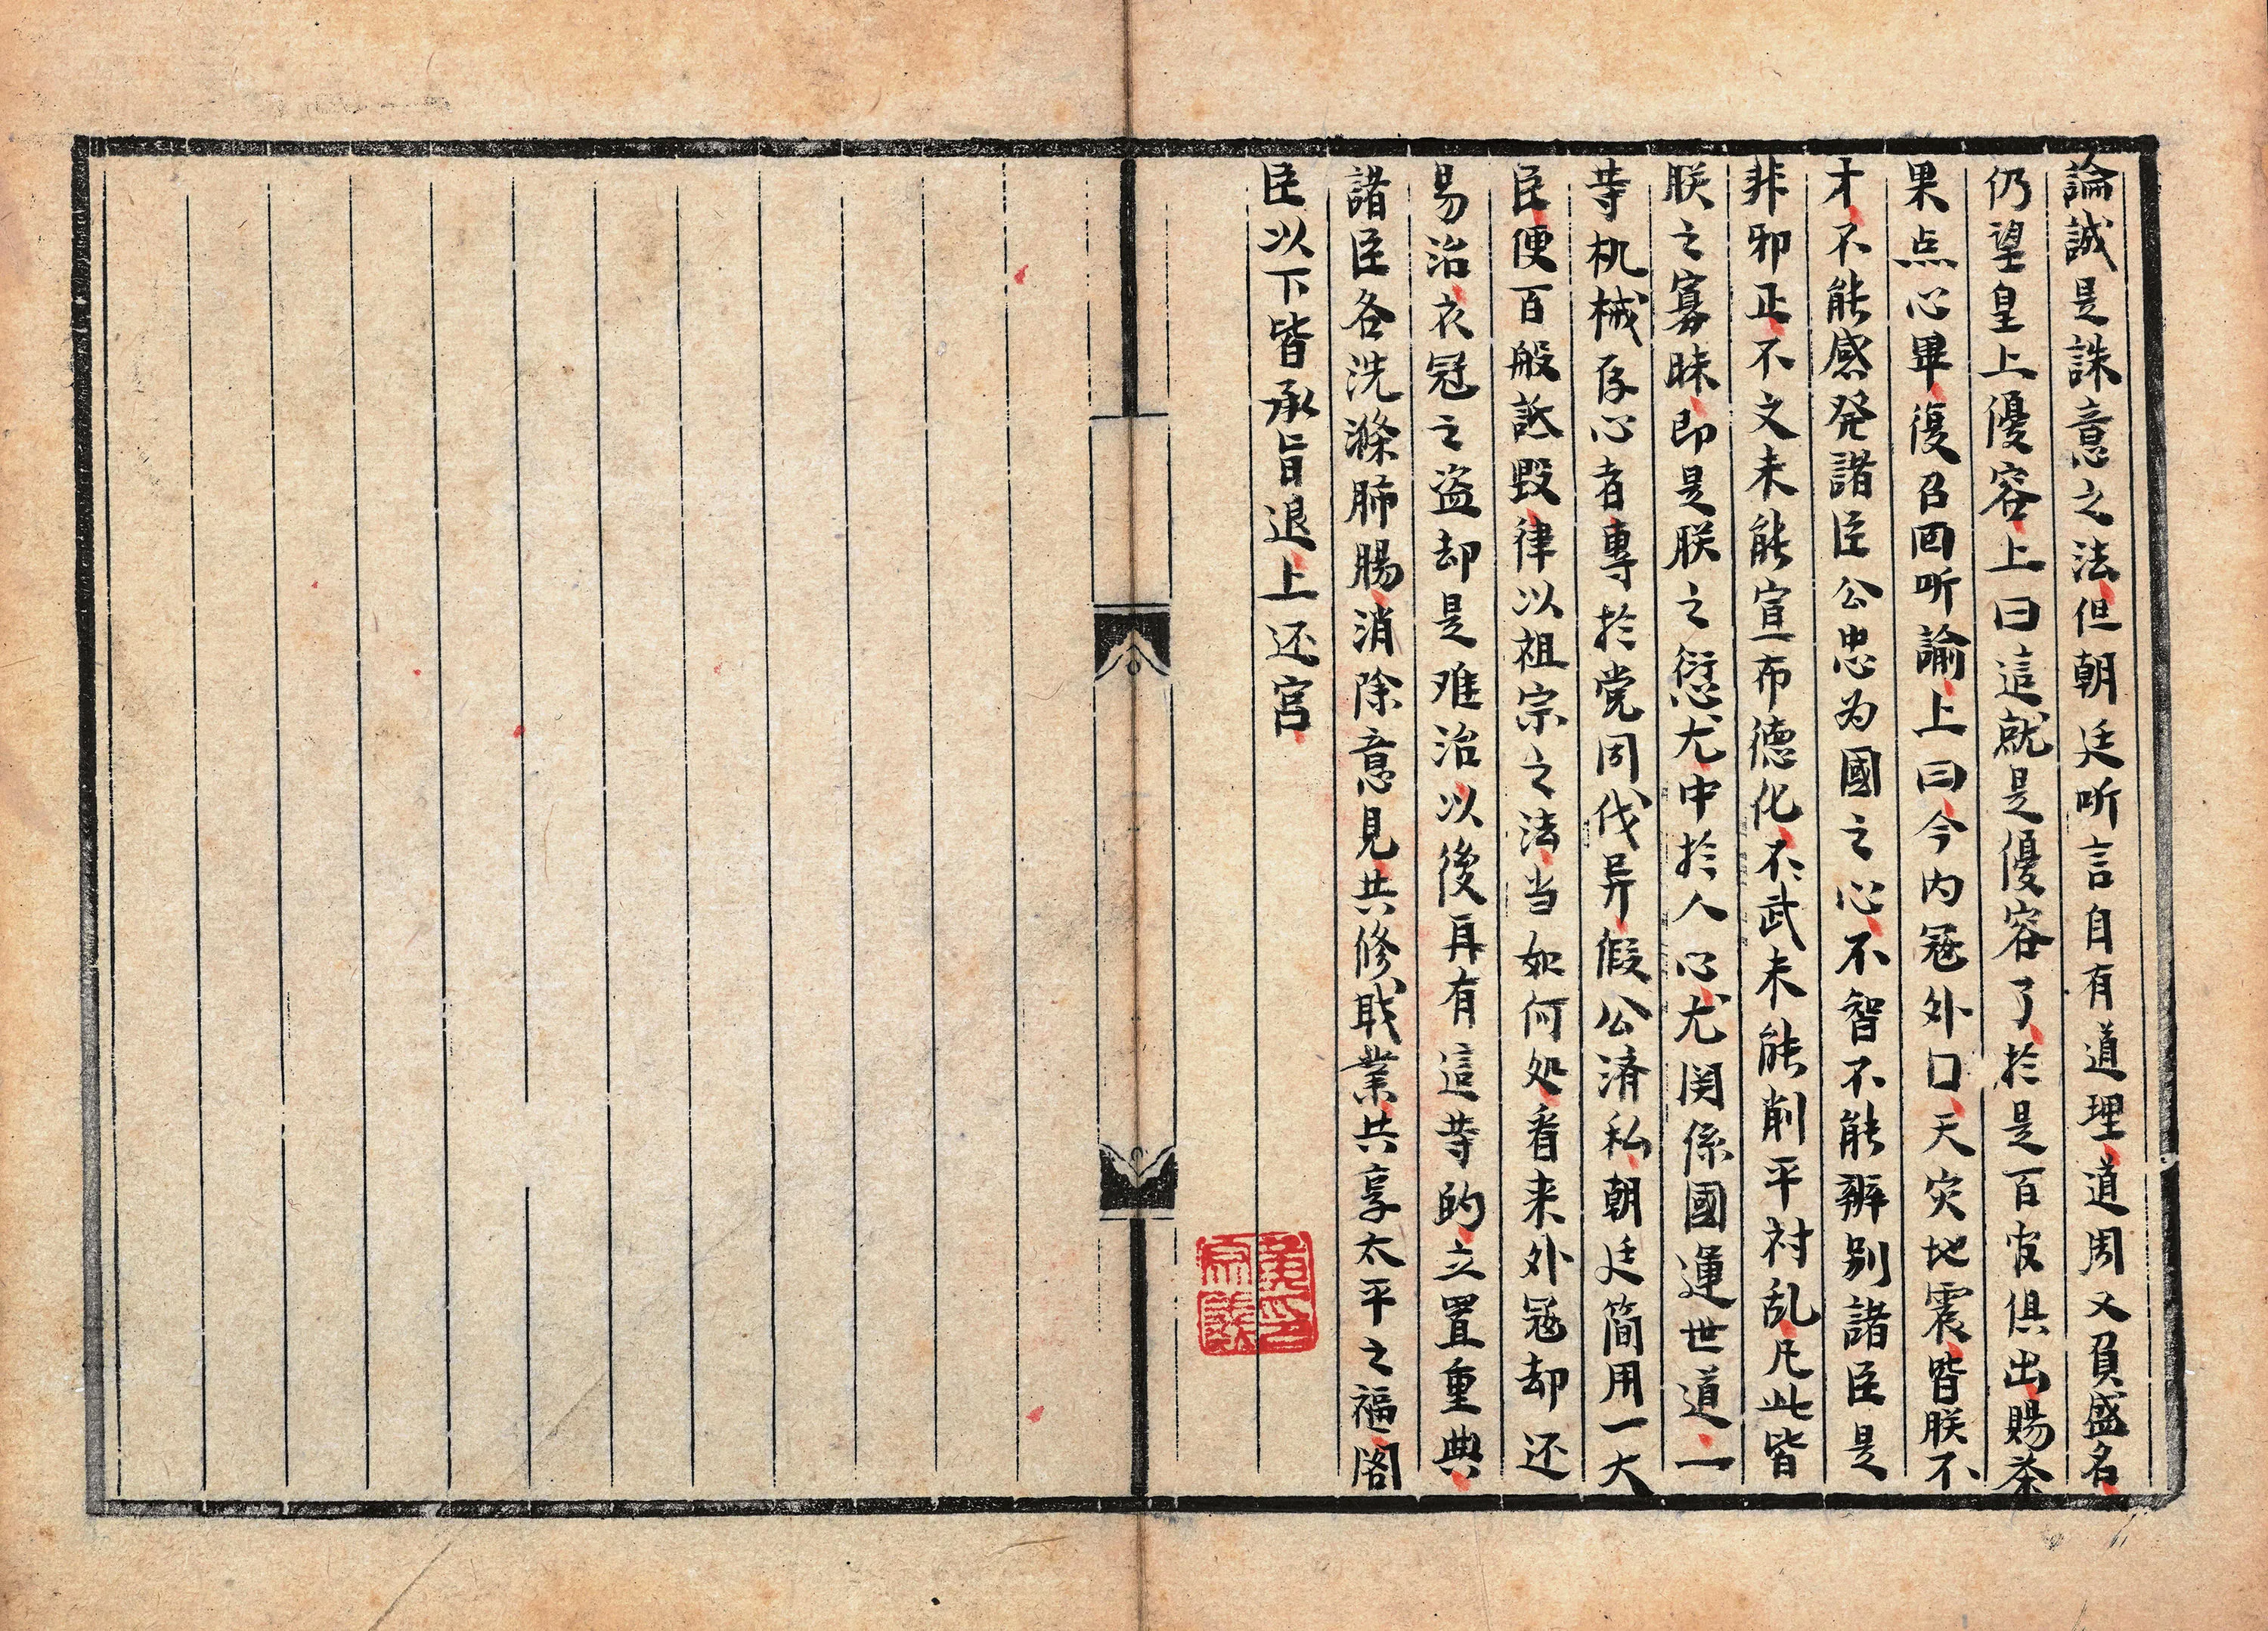 論誠是誅意之法但朝廷听言自有道理道周又負盛名
仍望皇上優容上曰這就是優容了於是百官俱出賜茶
果点心畢復召回听諭上曰今内寇外口天灾地震皆朕不
才不能感発諸臣公忠为國之心不智不能辨别諸臣是
非邪正不文未能宣布德化不武未能削平禍乱凡此皆
朕之寡昧即是朕之愆尤中於人心尤関係國運世道一
等机械存心者專於党同伐异假公済私朝廷简用一大
臣便百般詆毀律以祖宗之法当如何处看来外寇却还
易治衣冠之盗却是难治以後再有這等的立置重典
諸臣各洗滌肺腸消除意見共修职業共享太平之福閣
臣以下皆承旨退上还宫